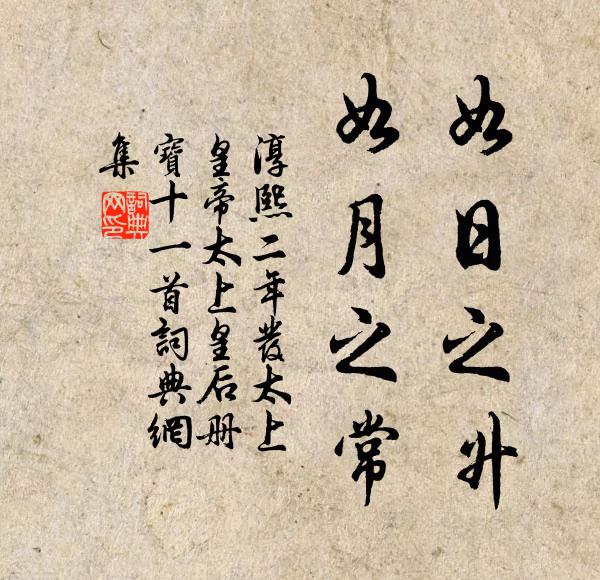 如日之升
如月之常
淳熙二年發太上
皇帝太上皇后册
寶十一首詞典網
集
詞典
网印